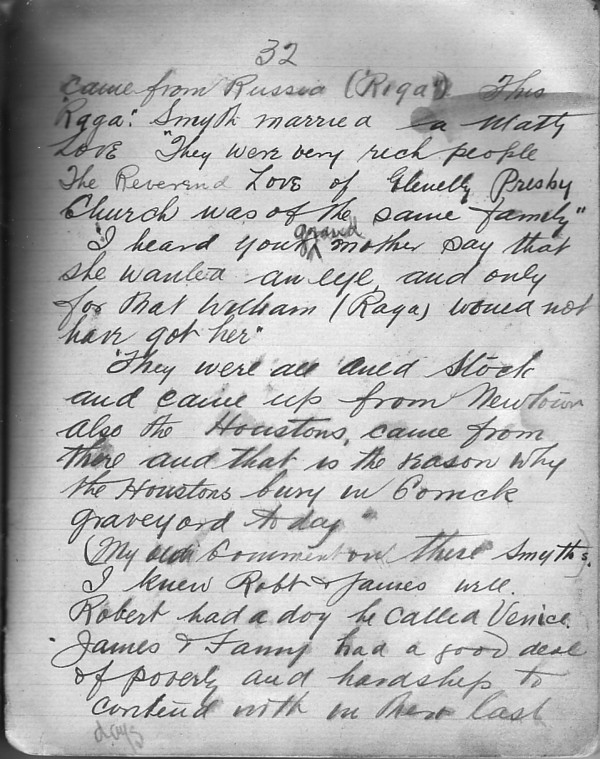 32
came from Russia ("Riga"). This
"Raga". Smyth married a Matty
Love "They were very rich people
The Reverend Love of Glenelly Presby
Church was of the same family"
"I heard your grand mother say that
she wanted an eye, and only
for that William (Raga) would not
have got her"
"They were all auld Stock
and came up from Newtown
also the Houstons, came from
there and that is the reason why
the Houstons bury in Corrick
graveyard to day"
(My own Comment on these Smyths.
I knew Robt & James well.
Robert had a dog he called Venice.
James & Fanny had a good deal
of poverty and hardship to
contend with in their last
days